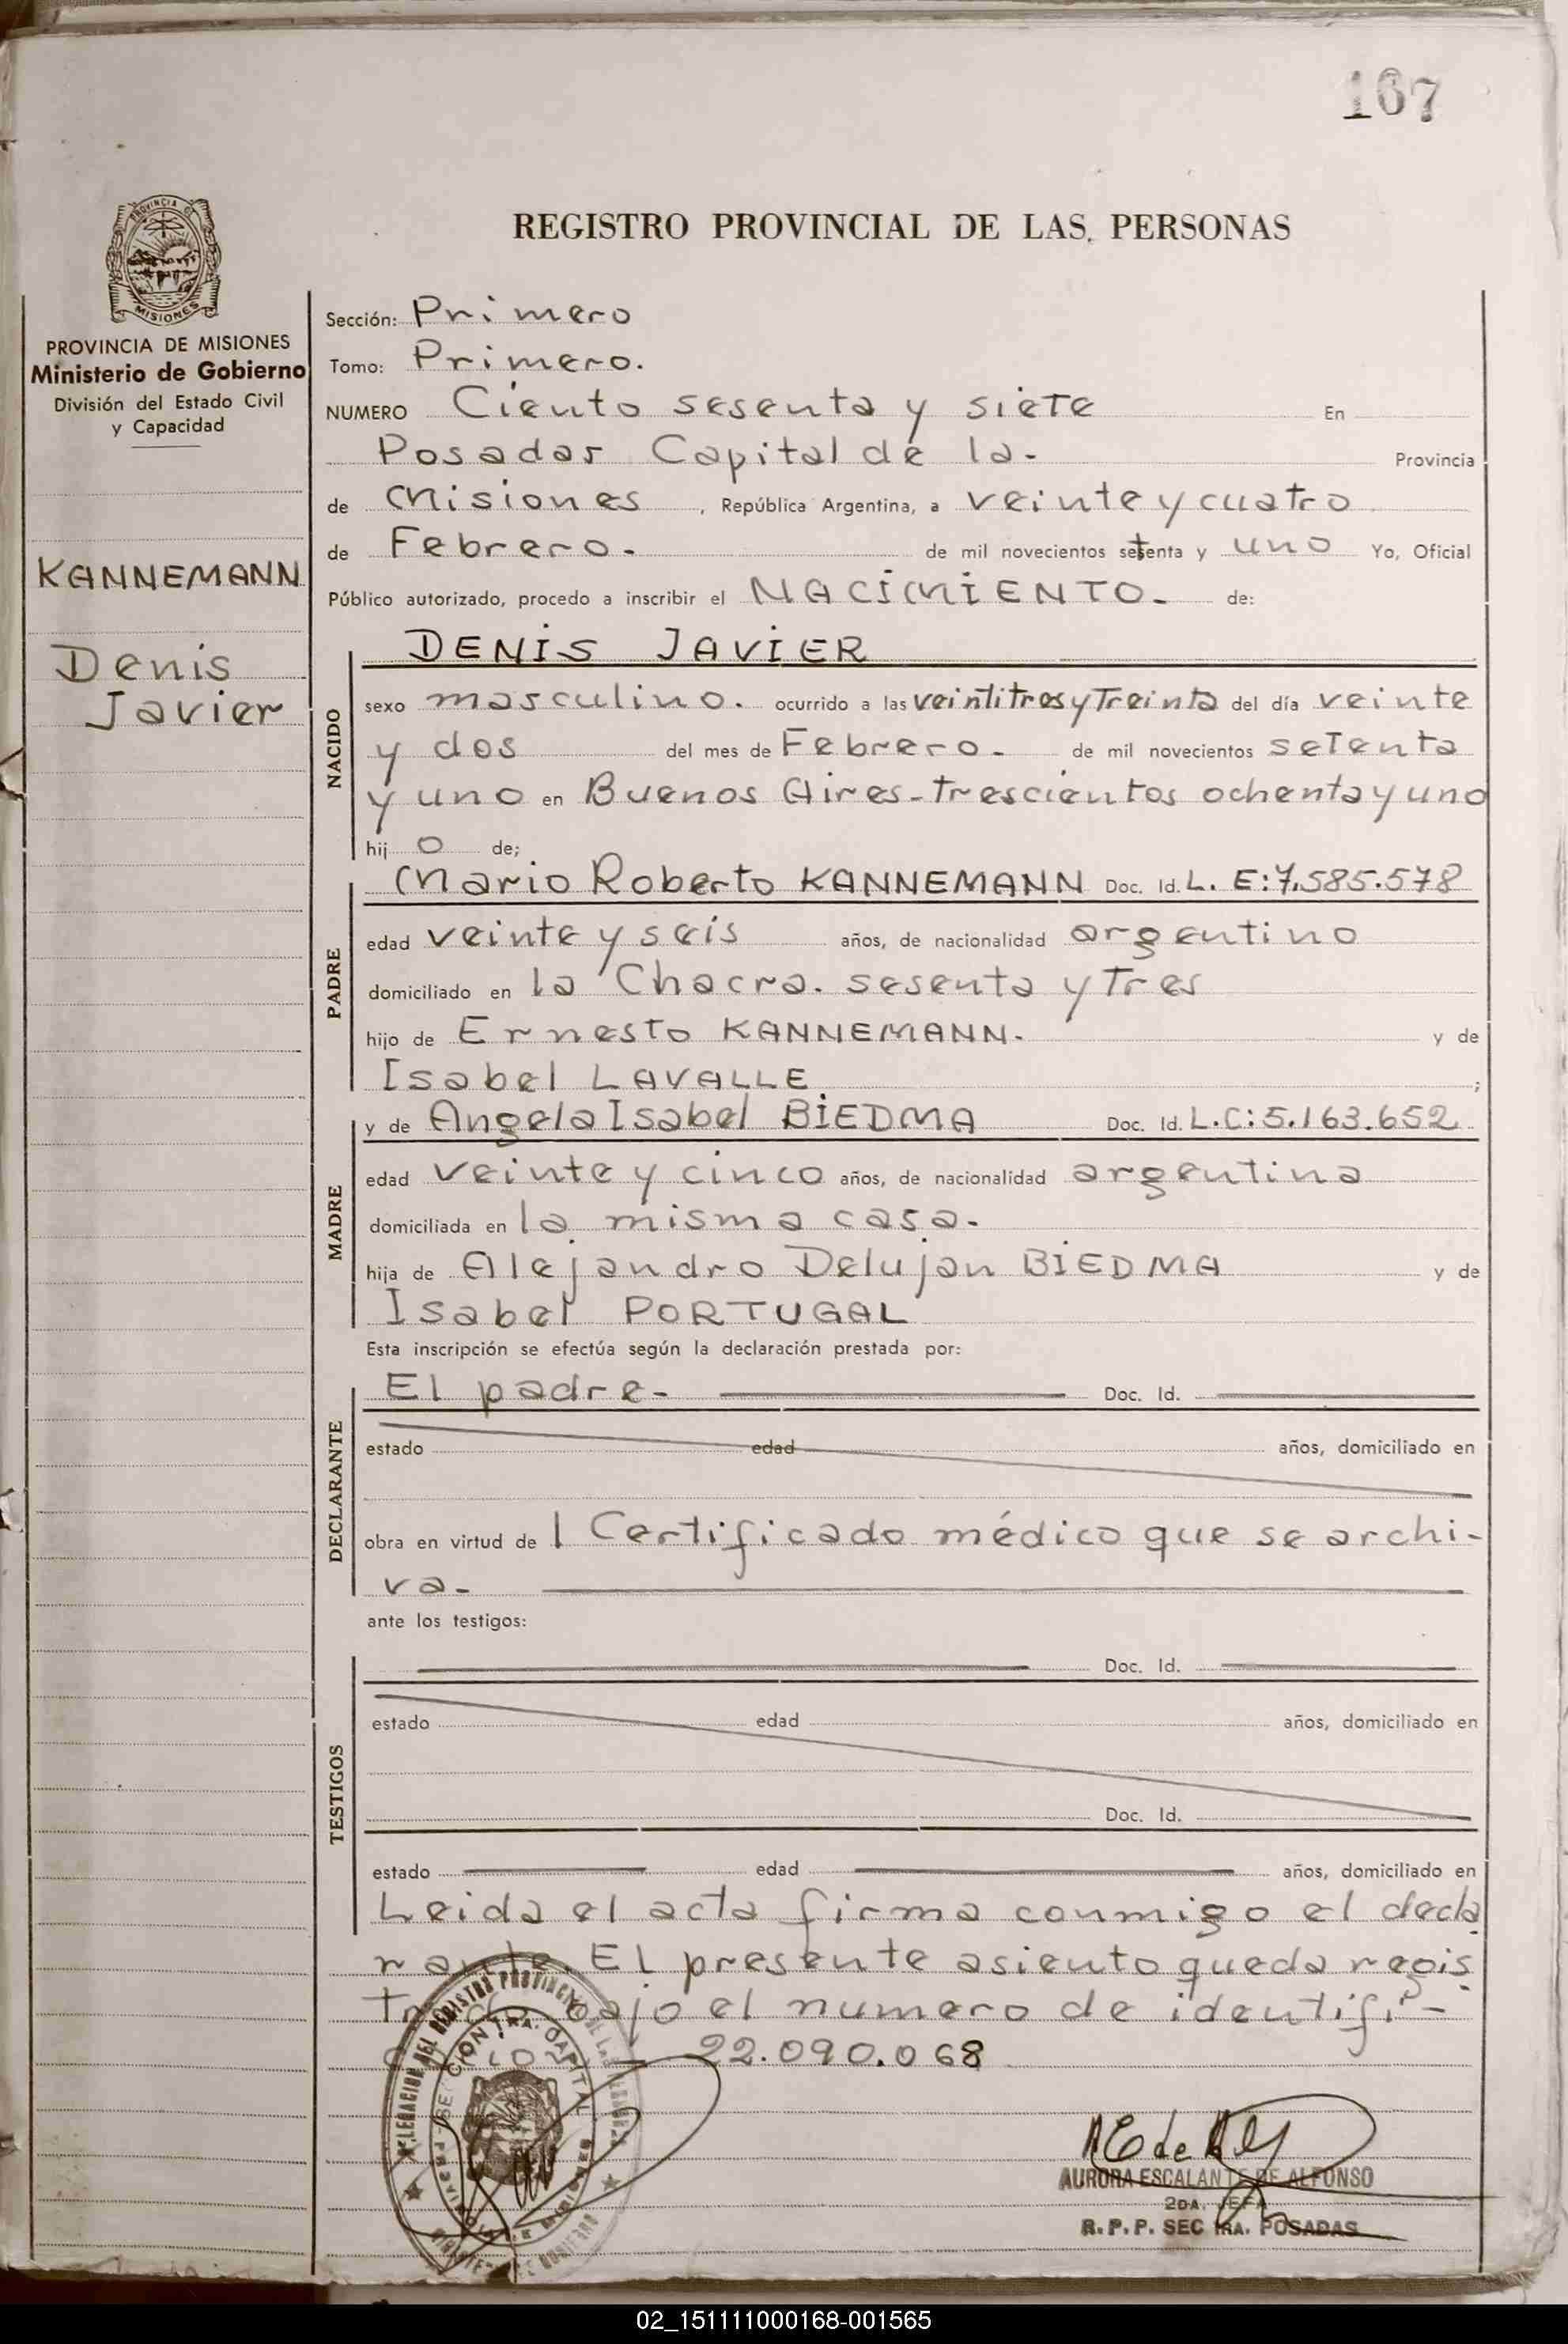 167
PROVINCIA DE MISIONES
REGISTRO PROVINCIAL DE LAS PERSONAS
PROVINCIA DE MISIONES
Ministerio de Gobierno
División del Estado Civil
y Capacidad
KANNEMANN
Denis
Javier
Sección: Primero
Tomo: Primero.
NUMERO Ciento sesenta y siete En
Posadas Capital de la- Provincia
de Misiones, República Argentina, a veinte y cuatro
de Febrero. de mil novecientos setenta y uno Yo, Oficial
Público autorizado, procedo a inscribir el NACIMIENTO. de:
NACIDO
DENIS JAVIER
sexo masculino. ocurrido a las veintitres y Treinta del día veinte
y dos del mes de Febrero. de mil novecientos setenta
y uno en Buenos Aires-trescientos ochenta y uno
hij o de;
PADRE
Mario Roberto KANNEMANN Doc. Id. L. E: 7.585.578
edad veinte y seis años, de nacionalidad argentino
domiciliado en la Chacra. sesenta y Tres
hijo de Ernesto KANNEMANN. y de
Isabel LAVALLE ;
MADRE
y de Angela Isabel BIEDMA Doc. Id. L.C: 5.163.652
edad veinte y cinco años, de nacionalidad argentina
domiciliada en la misma casa.
hija de Alejandro Delujan BIEDMA y de
Isabel PORTUGAL
Esta inscripción se efectúa según la declaración prestada por:
DECLARANTE
El padre- Doc. Id.
estado edad años, domiciliado en
obra en virtud de l Certificado médico que se archi-
va-
ante los testigos:
TESTIGOS
Doc. Id.
estado edad años, domiciliado en
Doc. Id.
estado edad años, domiciliado en
Leida el acta firma conmigo el decla
rante. El presente asiento queda regis
trado bajo el numero de identifi-
22.090.068
AURORA ESCALANTE DE ALFONSO
2DA. JEFA
R.P.P. SEC 1RA. POSADAS
02_151111000168-001565